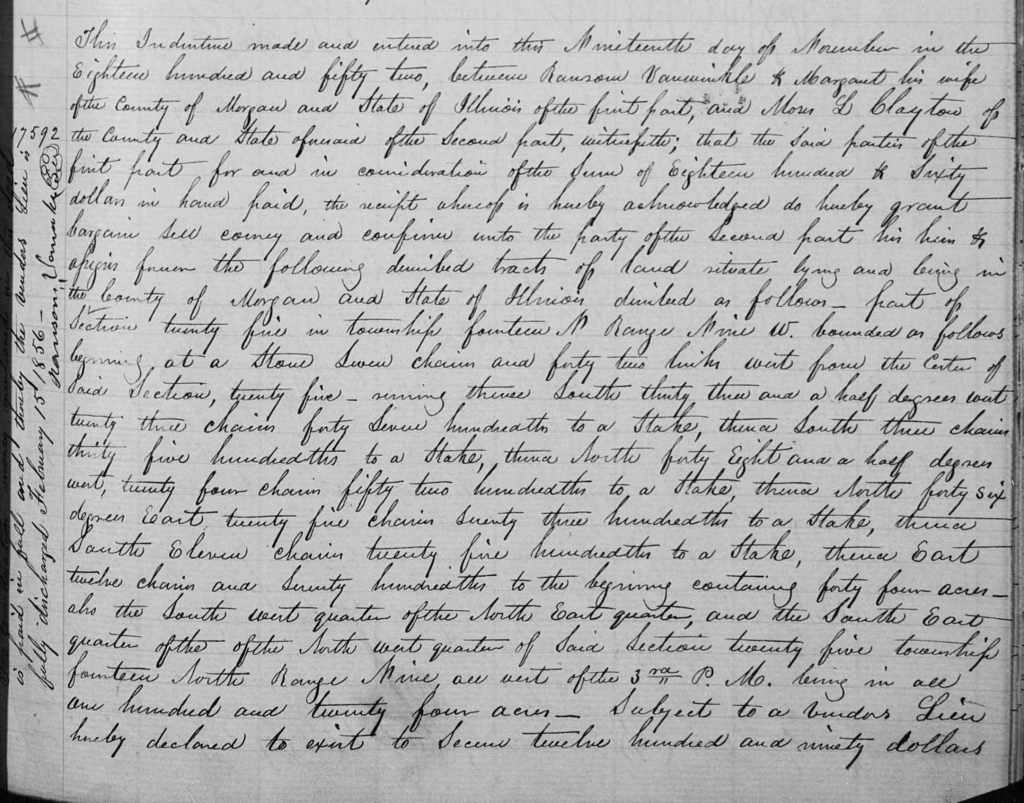 This Indenture made and entered into this Nineteenth day of November in the
Eighteen hundred and fifty two, between Ransom Vanwinkle & Margaret his wife
of the County of Morgan and State of Illinois of the first part, and Moses L Clayton of
the County and State aforesaid of the Second part, witnesseth; that the Said parties of the
first part for and in consideration of the Sum of Eighteen hundred & Sixty
dollars in hand paid, the receipt whereof is hereby acknowledged do hereby grant
bargain Sell convey and confirm unto the party of the Second part his heirs &
assigns forever the following described tracts of land situate lying and being in
the County of Morgan and State of Illinois described as follows – part of
Section twenty five in township fourteen N Range Nine W. bounded as follows
beginning at a Stone Seven chains and forty two links west from the Center of
Said Section, twenty five – running thence South thirty three and a half degrees west
twenty three chains forty Seven hundredths to a Stake, thence South three chains
thirty five hundredths to a Stake, thence North forty Eight and a half degrees
west, twenty four chains fifty two hundredths to a Stake, thence North forty six
degrees East, twenty five chains Seventy three hundredths to a Stake, thence
South Eleven chains twenty five hundredths to a Stake, thence East
twelve chains and Seventy hundredths to the beginning containing forty four acres –
also the South west quarter of the North East quarter, and the South East
quarter of the of the North west quarter of Said Section twenty five township
fourteen North Range Nine all west of the 3rd P. M. being in all
one hundred and twenty four acres – Subject to a vendors Lien
hereby declared to exist to Secure twelve hundred and ninety dollars
17592
is paid in full and thereby the vendors Lien is
fully discharged February 15th 1856 –
Ransom Vanwinkle